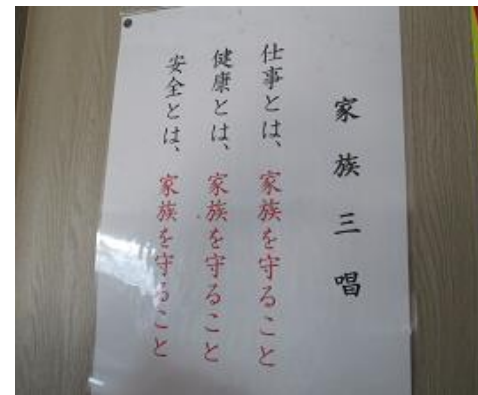 家族三唱
仕事とは、家族を守ること
健康とは、家族を守ること
安全とは、家族を守ること